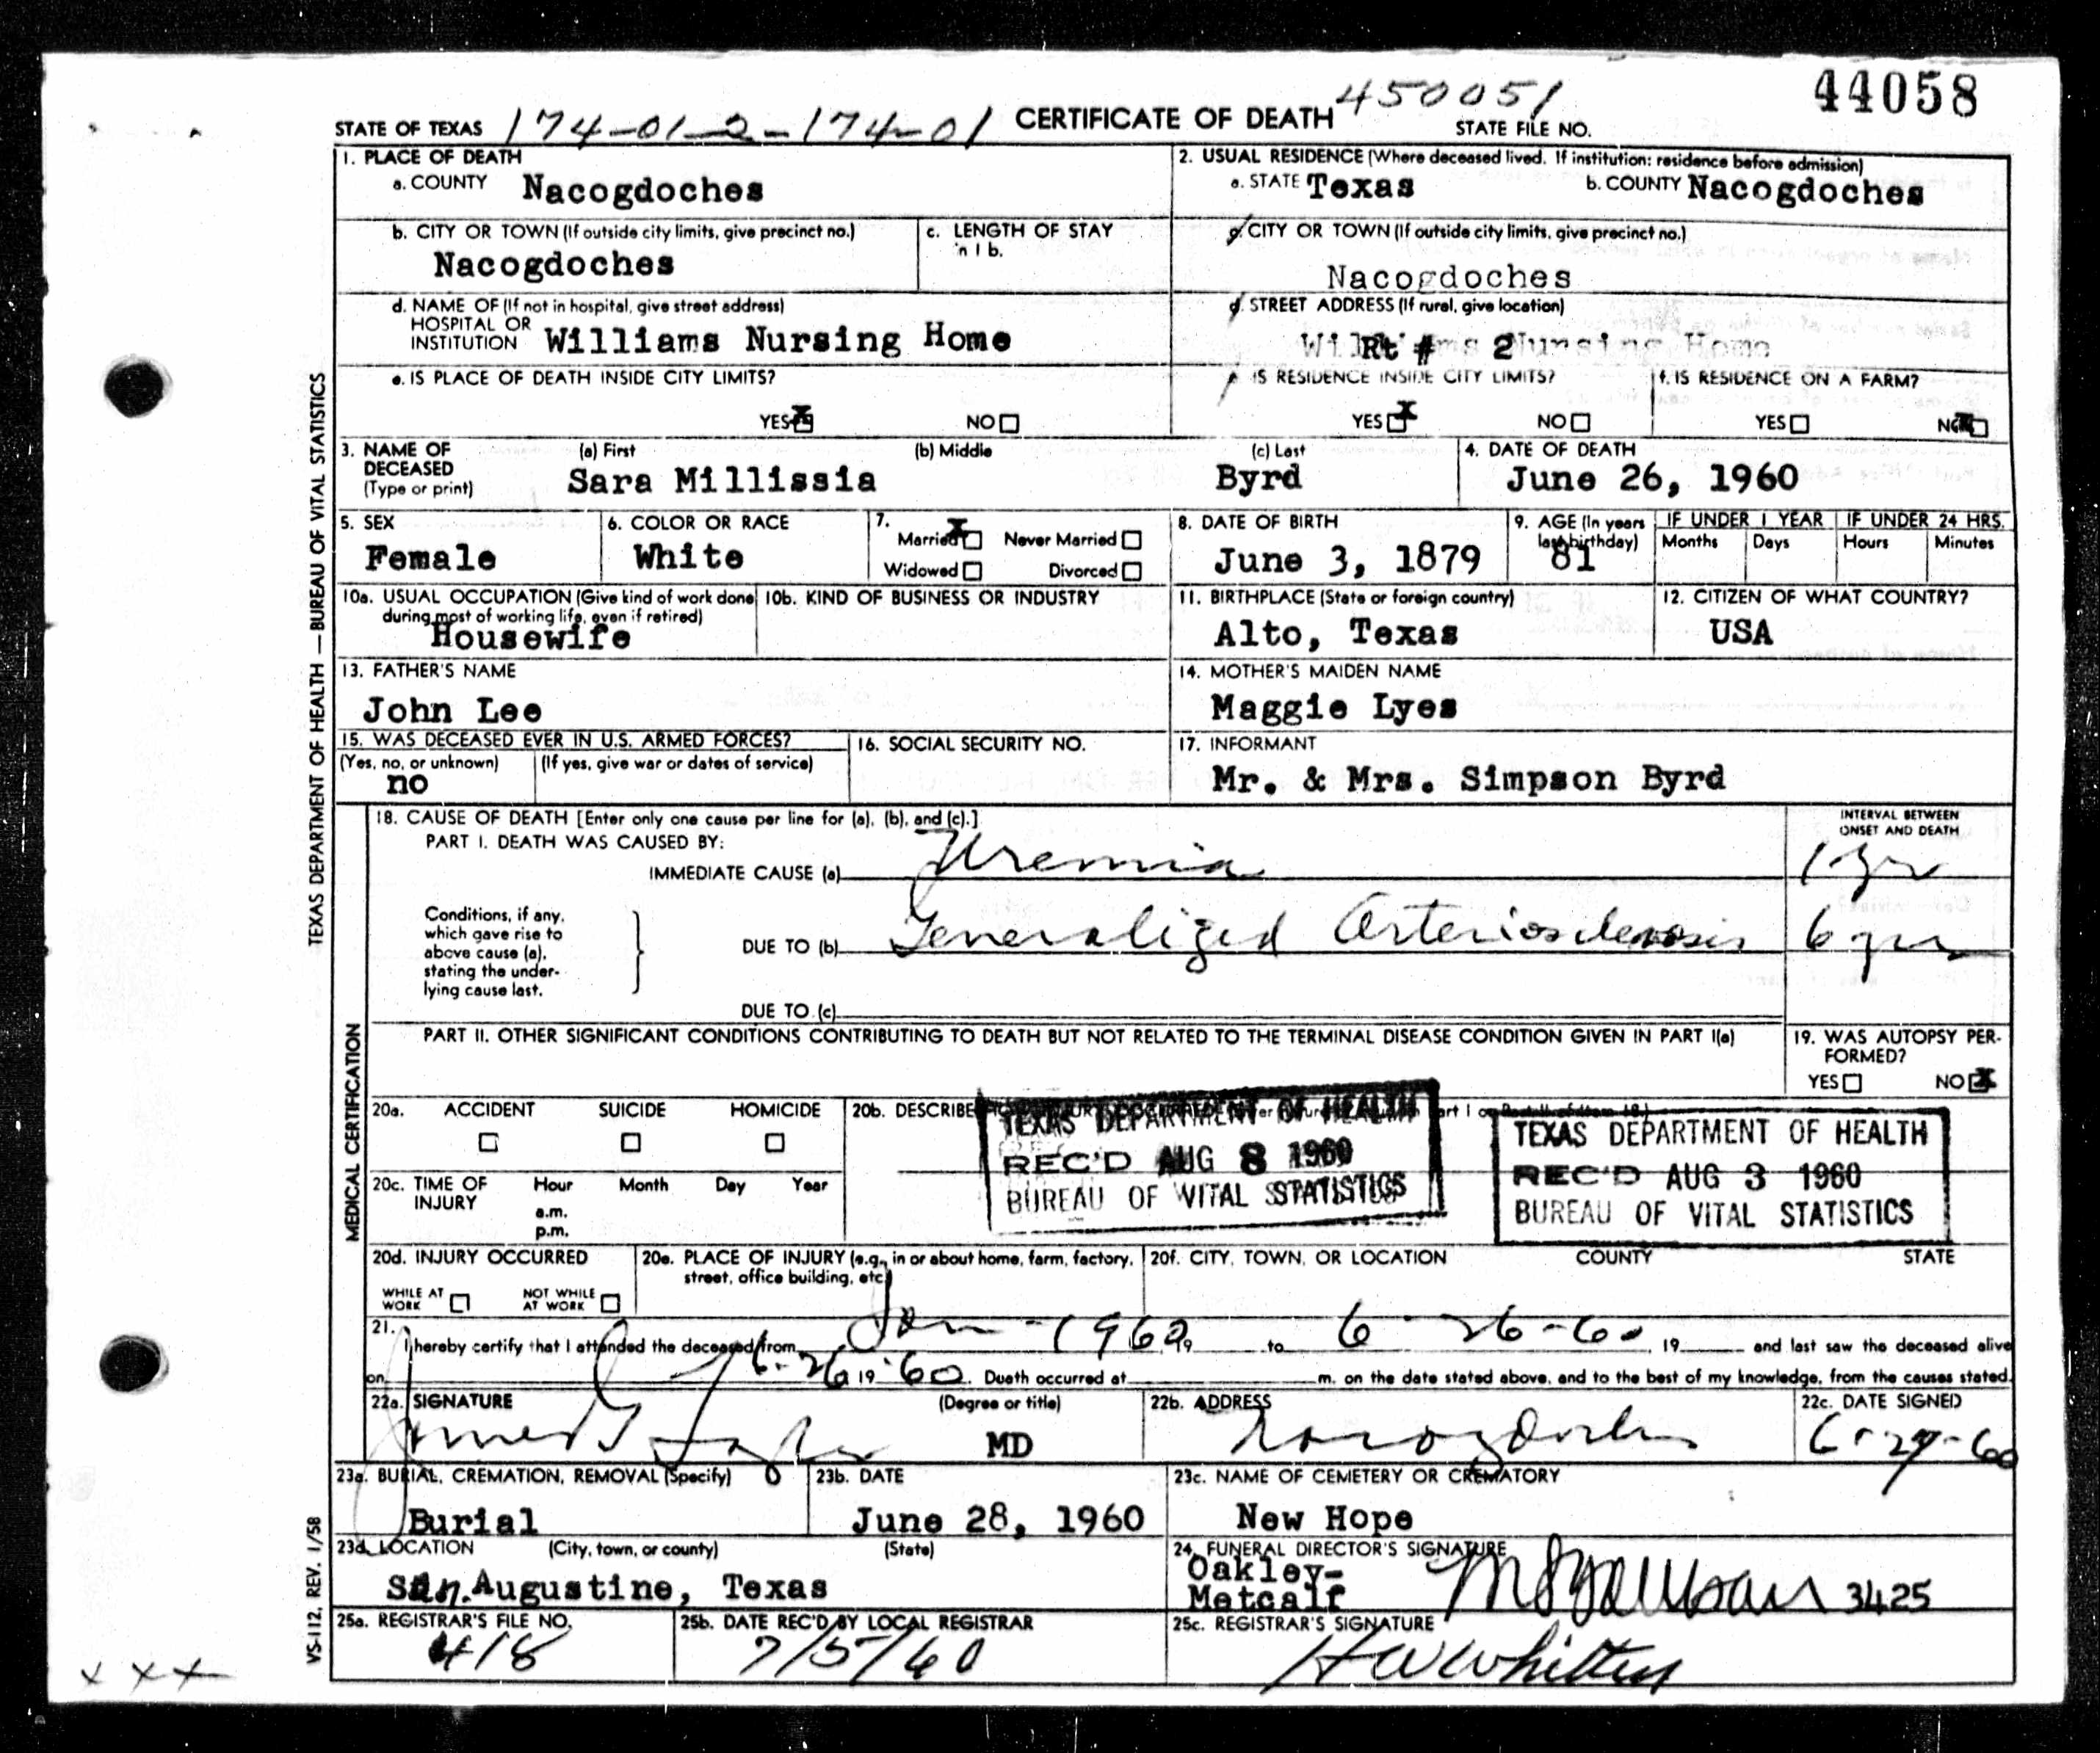 44058
STATE OF TEXAS 174-01-2-174-01 CERTIFICATE OF DEATH 450051
STATE FILE NO.
1. PLACE OF DEATH
a. COUNTY Nacogdoches
2. USUAL RESIDENCE (Where deceased lived. If institution: residence before admission)
a. STATE Texas b. COUNTY Nacogdoches
b. CITY OR TOWN (If outside city limits, give precinct no.)
Nacogdoches
c. LENGTH OF STAY
in 1 b.
c. CITY OR TOWN (If outside city limits, give precinct no.)
Nacogdoches
d. NAME OF (If not in hospital, give street address)
HOSPITAL OR
INSTITUTION Williams Nursing Home
d. STREET ADDRESS (If rural, give location)
Rt # 2
e. IS PLACE OF DEATH INSIDE CITY LIMITS?
YES X NO
IS RESIDENCE INSIDE CITY LIMITS?
YES X NO
f. IS RESIDENCE ON A FARM?
YES NO X
3. NAME OF DECEASED (Type or print)
(a) First (b) Middle (c) Last
Sara Millissia Byrd
4. DATE OF DEATH
June 26, 1960
5. SEX
Female
6. COLOR OR RACE
White
7. Married X Never Married
Widowed Divorced
8. DATE OF BIRTH
June 3, 1879
9. AGE (In years last birthday)
81
IF UNDER 1 YEAR IF UNDER 24 HRS.
Months Days Hours Minutes
10a. USUAL OCCUPATION (Give kind of work done
during most of working life, even if retired)
Housewife
10b. KIND OF BUSINESS OR INDUSTRY
11. BIRTHPLACE (State or foreign country)
Alto, Texas
12. CITIZEN OF WHAT COUNTRY?
USA
13. FATHER'S NAME
John Lee
14. MOTHER'S MAIDEN NAME
Maggie Lyes
15. WAS DECEASED EVER IN U.S. ARMED FORCES?
(Yes, no, or unknown) (If yes, give war or dates of service)
no
16. SOCIAL SECURITY NO.
17. INFORMANT
Mr. & Mrs. Simpson Byrd
18. CAUSE OF DEATH [Enter only one cause per line for (a), (b), and (c).]
INTERVAL BETWEEN
ONSET AND DEATH
PART I. DEATH WAS CAUSED BY:
IMMEDIATE CAUSE (a) Uremia 1 yr
Conditions, if any,
which gave rise to
above cause (a),
stating the under-
lying cause last.
DUE TO (b) Generalized Arteriosclerosis 6 yrs
DUE TO (c)
PART II. OTHER SIGNIFICANT CONDITIONS CONTRIBUTING TO DEATH BUT NOT RELATED TO THE TERMINAL DISEASE CONDITION GIVEN IN PART I(a)
19. WAS AUTOPSY PER-
FORMED?
YES NO X
20a. ACCIDENT SUICIDE HOMICIDE
20b. DESCRIBE
TEXAS DEPARTMENT OF HEALTH
REC'D AUG 8 1960
BUREAU OF VITAL STATISTICS
TEXAS DEPARTMENT OF HEALTH
REC'D AUG 3 1960
BUREAU OF VITAL STATISTICS
20c. TIME OF
INJURY
Hour Month Day Year
a.m.
p.m.
20d. INJURY OCCURRED
WHILE AT
WORK
NOT WHILE
AT WORK
20e. PLACE OF INJURY (e.g., in or about home, farm, factory,
street, office building, etc.)
20f. CITY, TOWN, OR LOCATION COUNTY STATE
21.
I hereby certify that I attended the deceased from Jan - 1960 19 to 6-26-60, 19 and last saw the deceased alive
on 6-26 19 60. Death occurred at m. on the date stated above, and to the best of my knowledge, from the causes stated.
22a. SIGNATURE (Degree or title)
MD
22b. ADDRESS
Nacogdoches
22c. DATE SIGNED
23a. BURIAL, CREMATION, REMOVAL (Specify)
Burial
23b. DATE
June 28, 1960
23c. NAME OF CEMETERY OR CREMATORY
New Hope
23d. LOCATION (City, town, or county) (State)
San Augustine, Texas
24. FUNERAL DIRECTOR'S SIGNATURE
Oakley-
Metcalf 3425
25a. REGISTRAR'S FILE NO.
418
25b. DATE REC'D BY LOCAL REGISTRAR
7/5/60
25c. REGISTRAR'S SIGNATURE
H W Whitten
TEXAS DEPARTMENT OF HEALTH — BUREAU OF VITAL STATISTICS
MEDICAL CERTIFICATION
VS-112, REV. 1/58
x x x